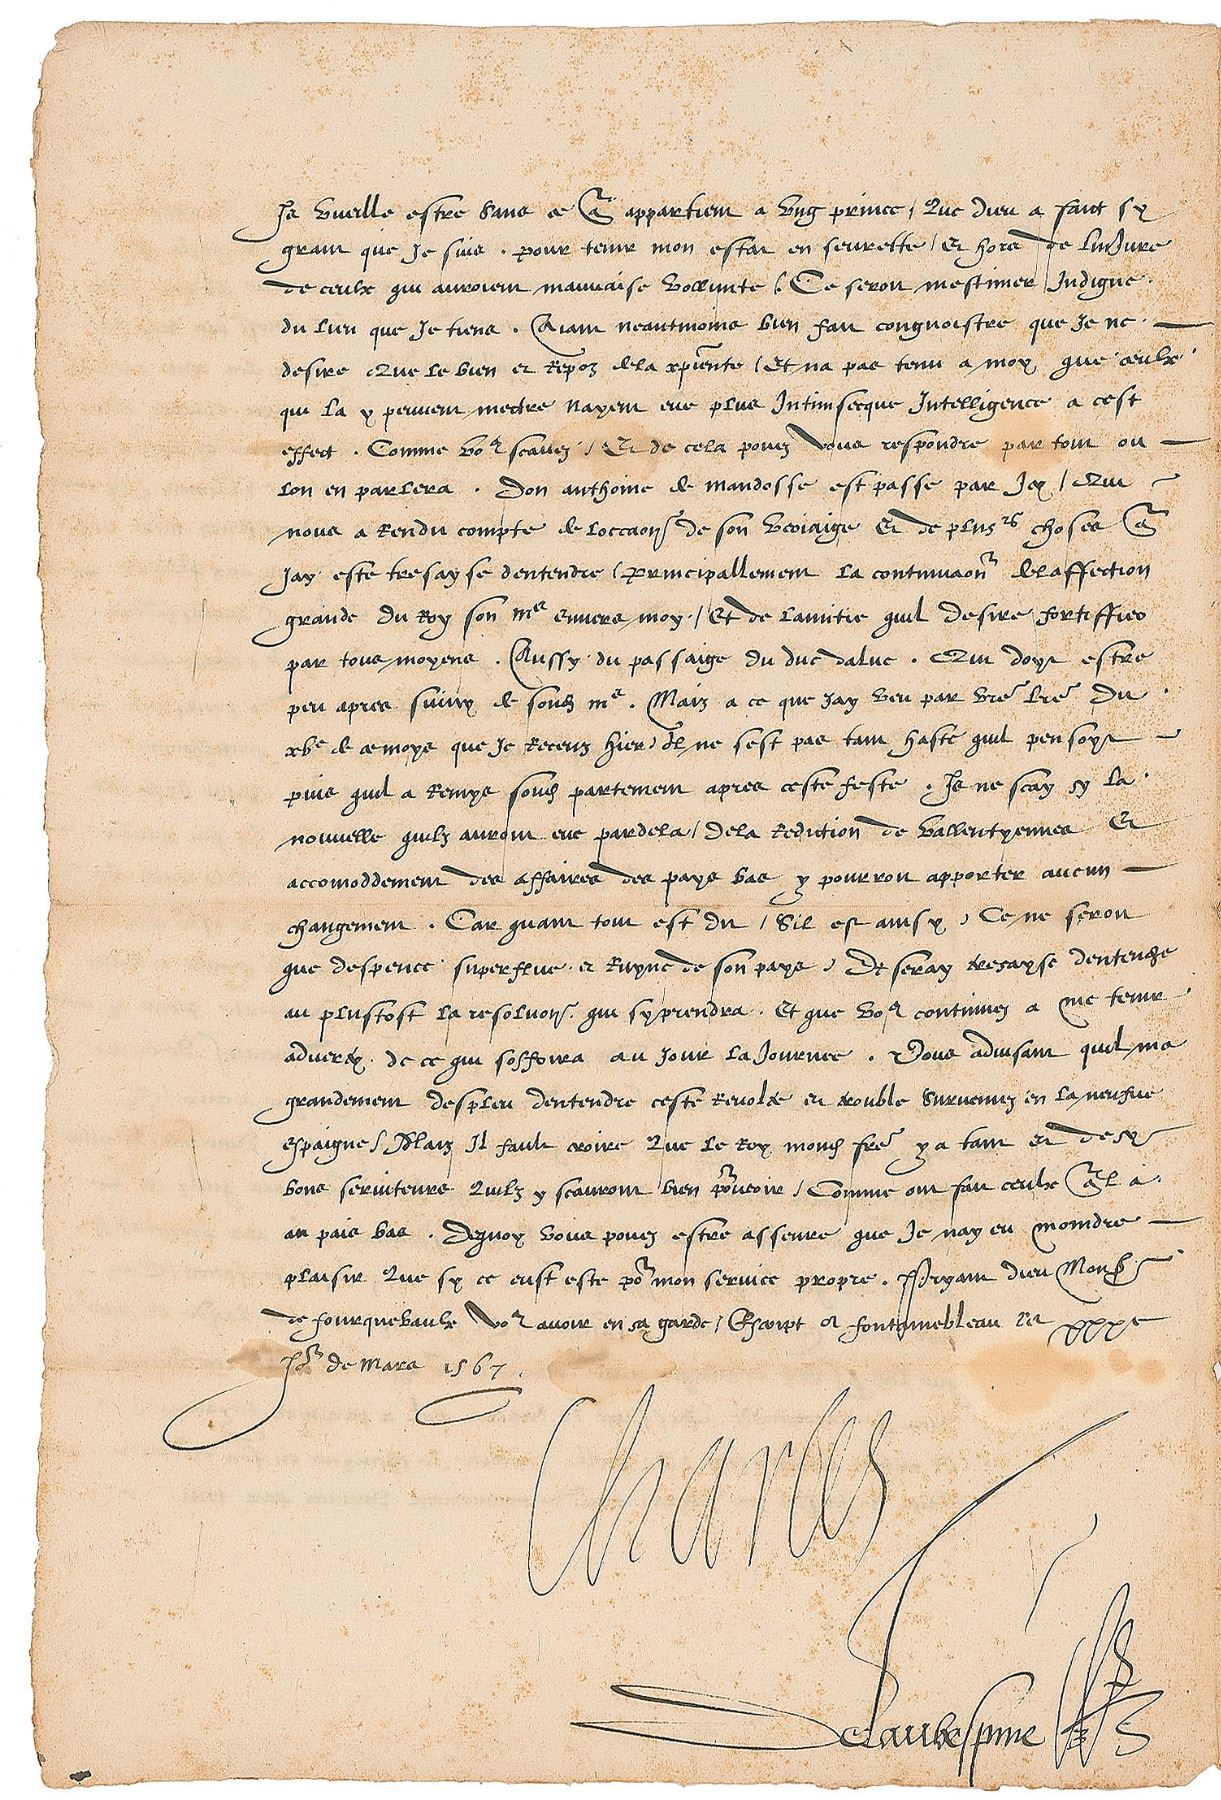 Je vueille estre sans ce q̃ appartient a ung prince / Que dieu a faict sy
grant que Je suis . pour tenir mon estat en seurette / Et hors de linJure
de ceulx qui auroient mauvaise vollunte / Ce seroit mestimer Indigne
du lieu que Je tiens . Aiant neantmoins bien fait congnoistre que Je ne
desire Que le bien et Repoz dela xpiente / Et na pas tenu a moy que ceulx
qui la y peuvent mectre nayent eue plus Intrinsecque Intelligence a cest
effect . Comme vos scavez / Et de cela pouez vous respondre par tout ou
lon en parlera . Don anthoine de mandosse est passe par Icy / Qui
nous a Rendu compte de loccaon de son voiaige Et de plusrs choses q̃
Jay este tresayse dentendre / principallement la continuaon delaffection
grande du Roy son me envers moy / Et de lamitie quil desire fortiffier
par tous moyens . Aussy du passaige du duc dalve . Qui doyt estre
peu apres suivy de sond me . Mais a ce que Jay veu par vre lre du
xve de ce moys que Je Receuz hier / Il ne sest pas tant haste quil pensoyt
puis quil a Remys sond partement apres ceste feste . Je ne scay sy la
nouvelle quilz auront eue pardela / dela Rediction de Vallentyennes Et
accomoddement des affaires des pays bas y pourront apporter aucun
changement . Car quant tout est dit / Sil est ainsy / Ce ne seroit
que despence superflue et Ruyne de son pays / Et seray tresayse dentendre
au plustost la resoluon qui sy prendra . Et que vos continuez a me tenir
adverty de ce qui soffrira au Jour la Journee . Vous advisant quil ma
grandement despleu dentendre ceste Revolte et trouble survenuz en la neufve
espaigne / Mais Il fault croire Que le Roy mond frere y a tant et de sy
bons serviteurs Quilz y scauront bien pourveoir / Comme ont fait ceulx q̃l a
au pais bas . Dequoy vous pouez estre asseure que Je nay eu moindre
plaisir Que sy ce eust este po mon service propre . Pryant dieu Monsr
de fourquevaulx Vos avoir en sa garde / Escript a fontainebleau le xxxe
Jor de Mars 1567 .
Charles
Delaubespine